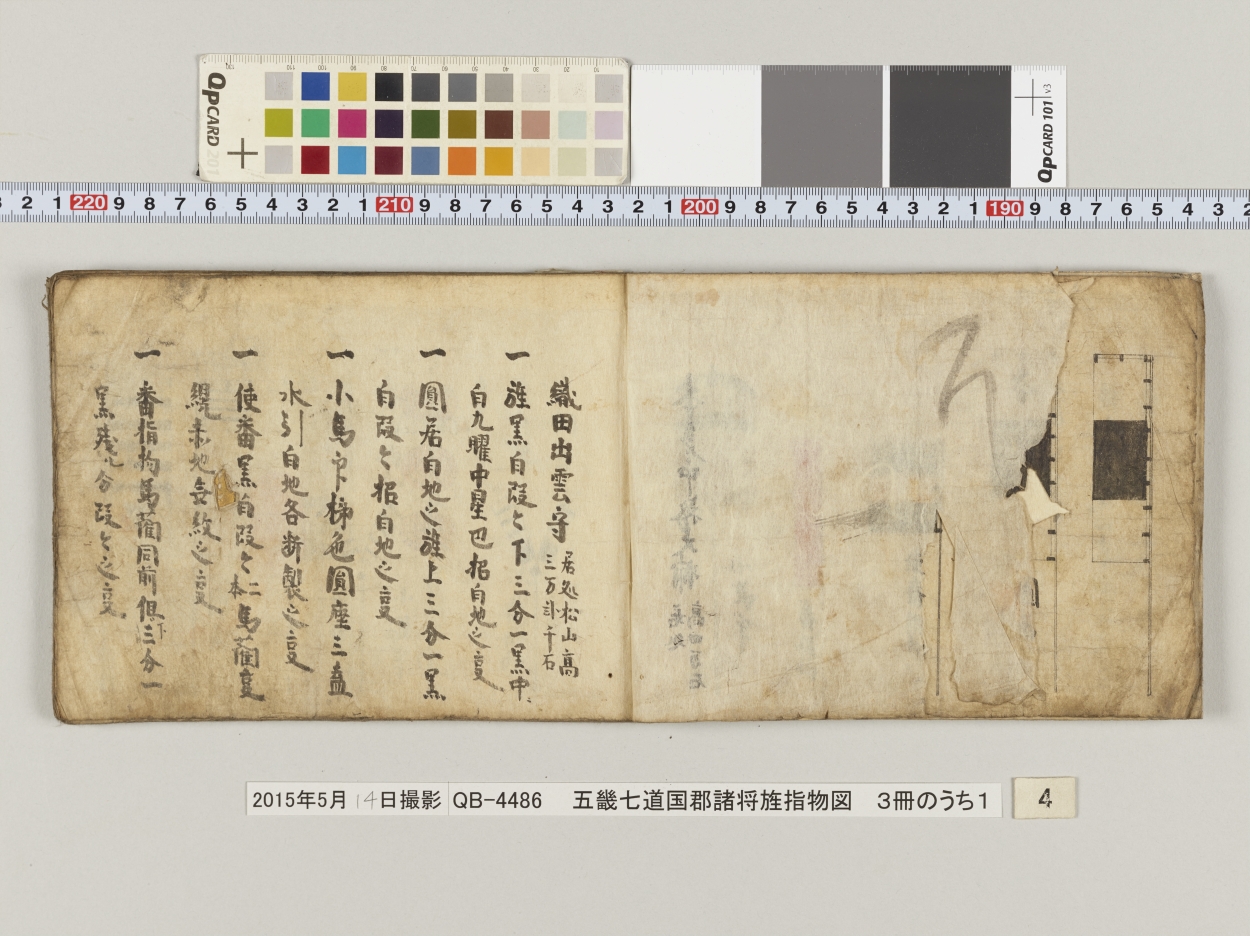 QPCARD 201
QPCARD 101 v3
3 2 1 220 9 8 7 6 5 4 3 2 1 210 9 8 7 6 5 4 3 2 1 200 9 8 7 6 5 4 3 2 1 190 9 8 7 6 5 4 3 2
織田出雲守 居処松山高
三万計千石
一 旌黒白段々下三分一黒中
白九曜中星巴招白地之亶
一 圓居白地之旌上三分一黒
白段々招白地之亶
一 小馬印梯色圓座三蓋
水引白地各断製之亶
一 使番黒白段々二本馬藺亶
緄赤地無紋之亶
一 番指物馬藺同前但下三分一
黒残八分段々之亶
2015年5月14日撮影 QB-4486 五畿七道国郡諸将旌指物図 3冊のうち1
4